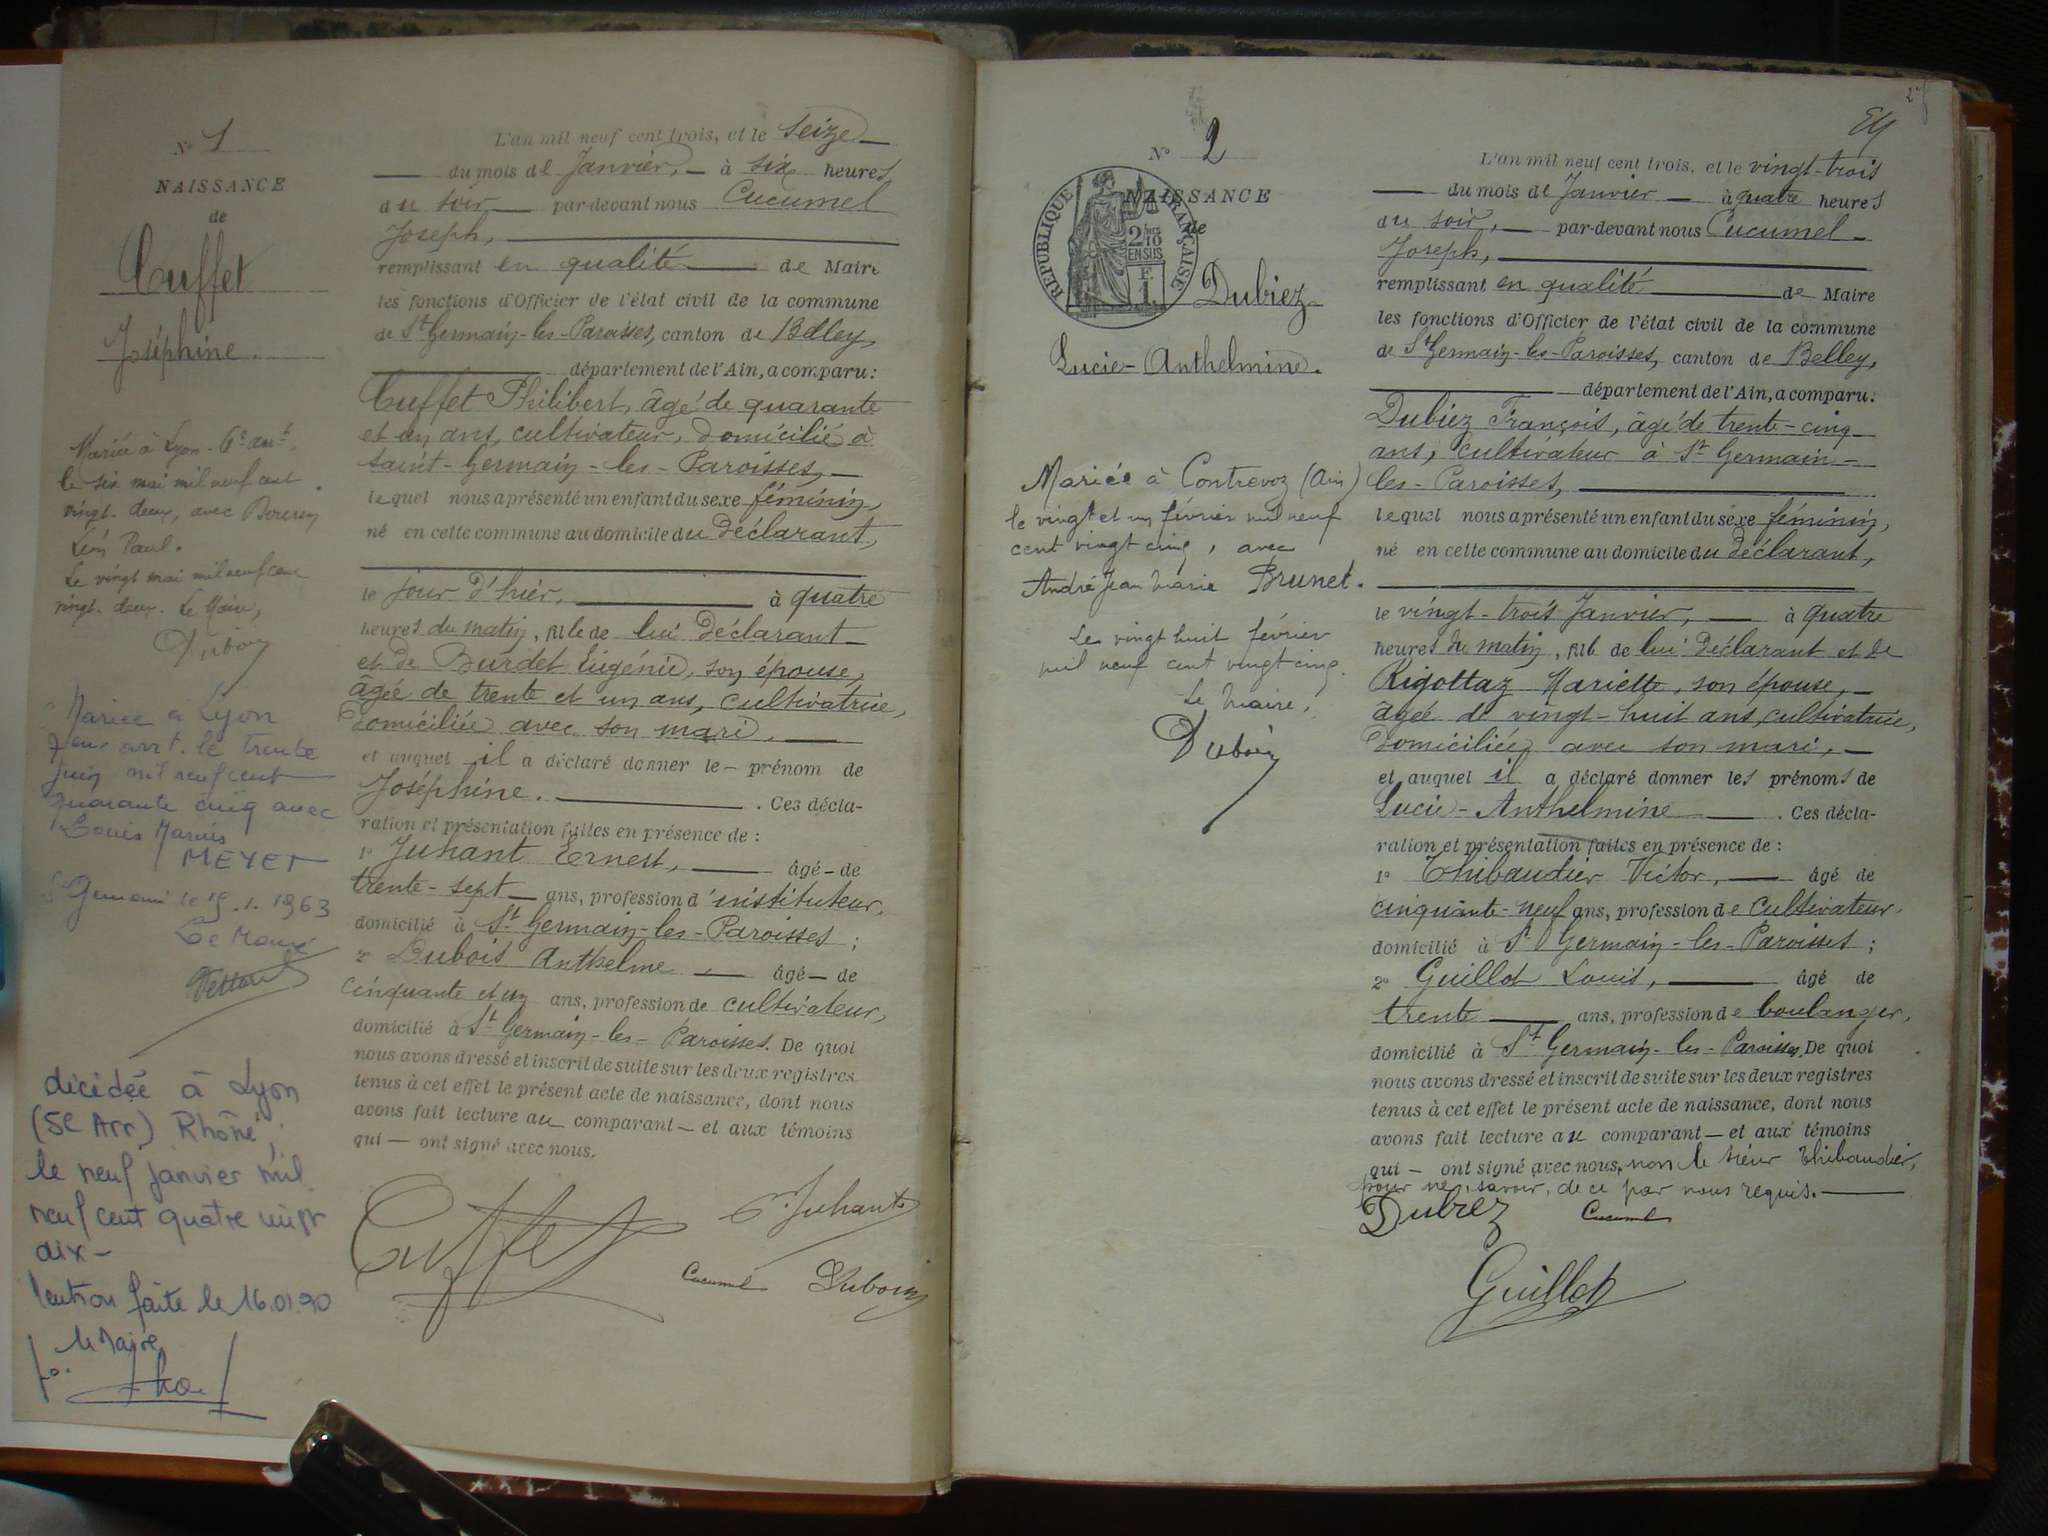 N° 1
NAISSANCE
de
Cuffet
Joséphine.
Mariée à Lyon - 6e arrt.
le six mai mil neuf cent
vingt-deux, avec
Léon Paul.
Le vingt mai mil neuf cent
vingt-deux. Le Maire,
Dubois
Mariée à Lyon
arrt. le trente
juin mil neuf cent
quarante cinq avec
Louis Marius
MEYET
St Germain le 15.1.1963
Le Maire
décédée à Lyon
(5e Arr) Rhône,
le neuf janvier mil
neuf cent quatre vingt
dix -
mention faite le 16.01.90
le Maire
L'an mil neuf cent trois, et le seize
du mois de Janvier, à six heures
du soir par-devant nous Cucumel
Joseph,
remplissant en qualité de Maire
les fonctions d'Officier de l'état civil de la commune
de St Germain-les-Paroisses, canton de Belley,
département de l'Ain, a comparu:
Cuffet Philibert, âgé de quarante
et un ans, cultivateur, domicilié à
Saint-Germain-les-Paroisses,
lequel nous a présenté un enfant du sexe féminin,
né en cette commune au domicile du déclarant,
le jour d'hier, à quatre
heures du matin, fille de lui déclarant
et de Burdet Eugénie, son épouse,
âgée de trente et un ans, cultivatrice,
domiciliée avec son mari,
et auquel il a déclaré donner le prénom de
Joséphine. . Ces décla-
ration et présentation faites en présence de :
1° Juhant Ernest, âgé de
trente-sept ans, profession d'instituteur,
domicilié à St Germain-les-Paroisses ;
2° Dubois Anthelme âgé de
cinquante et un ans, profession de cultivateur,
domicilié à St Germain-les-Paroisses. De quoi
nous avons dressé et inscrit de suite sur les deux registres
tenus à cet effet le présent acte de naissance, dont nous
avons fait lecture au comparant — et aux témoins
qui — ont signé avec nous.
Cuffet
Juhant
Cucumel Dubois
2
N° 2
NAISSANCE
de
RÉPUBLIQUE FRANÇAISE
2/10
EN SUS
F.
1.
Dubiez
Lucie-Anthelmine.
Mariée à Contrevoz (Ain)
le vingt et un février mil neuf
cent vingt cinq, avec
André Jean Marie Brunet.
Le vingt huit février
mil neuf cent vingt cinq.
Le Maire,
Dubois
L'an mil neuf cent trois, et le vingt-trois
du mois de Janvier — à quatre heures
du soir, par-devant nous Cucumel
Joseph,
remplissant en qualité de Maire
les fonctions d'Officier de l'état civil de la commune
de St Germain-les-Paroisses, canton de Belley,
département de l'Ain, a comparu:
Dubiez François, âgé de trente-cinq
ans, cultivateur à St Germain-
les-Paroisses,
lequel nous a présenté un enfant du sexe féminin,
né en cette commune au domicile du déclarant,
le vingt-trois Janvier, à quatre
heures du matin, fille de lui déclarant et de
Rigottaz Mariette, son épouse,
âgée de vingt-huit ans, cultivatrice,
domiciliée avec son mari,
et auquel il a déclaré donner les prénoms de
Lucie-Anthelmine . Ces décla-
ration et présentation faites en présence de :
1° Thibaudier Victor, âgé de
cinquante-neuf ans, profession de cultivateur,
domicilié à St Germain-les-Paroisses ;
2° Guillot Louis, âgé de
trente ans, profession de boulanger,
domicilié à St Germain-les-Paroisses. De quoi
nous avons dressé et inscrit de suite sur les deux registres
tenus à cet effet le présent acte de naissance, dont nous
avons fait lecture au comparant — et aux témoins
qui — ont signé avec nous, non le sieur Thibaudier,
pour ne savoir, de ce par nous requis.
Dubiez Cucumel
Guillot